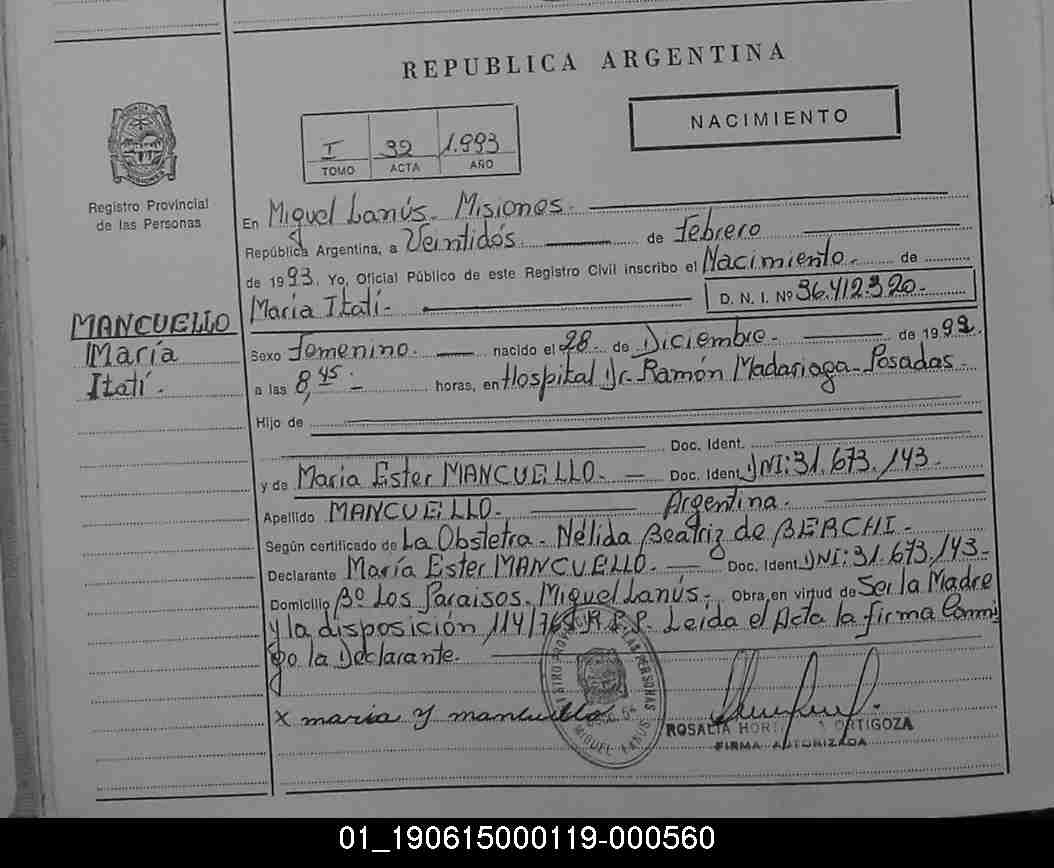 REPUBLICA ARGENTINA
NACIMIENTO
I 32 1.993
TOMO ACTA AÑO
Registro Provincial
de las Personas
En Miguel Lanús - Misiones -
República Argentina, a Veintidós. de febrero
de 1993. Yo, Oficial Público de este Registro Civil inscribo el Nacimiento. de
María Itatí - D. N. I. Nº 36.412.320 -
MANCUELLO
María
Itatí -
Sexo femenino. nacido el 28 - de Diciembre - de 1992.
a las 8,45 - horas, en Hospital Dr. Ramón Madariaga - Posadas -
Hijo de
Doc. Ident.
y de María Ester MANCUELLO - Doc. Ident. DNI: 31.673.143 -
Apellido MANCUELLO - Argentina -
Según certificado de La Obstetra - Nélida Beatriz de BERCHI -
Declarante María Ester MANCUELLO - Doc. Ident. DNI: 31.673.143 -
Domicilio Bº Los Paraisos, Miguel Lanús; Obra en virtud de Ser la Madre
y la disposición 114/ Leída el Acta la firma Conmi
go la Declarante.
x maria y mancuello
MIGUEL LANUS
ROSALIA ORTIGOZA
FIRMA AUTORIZADA
01_190615000119-000560